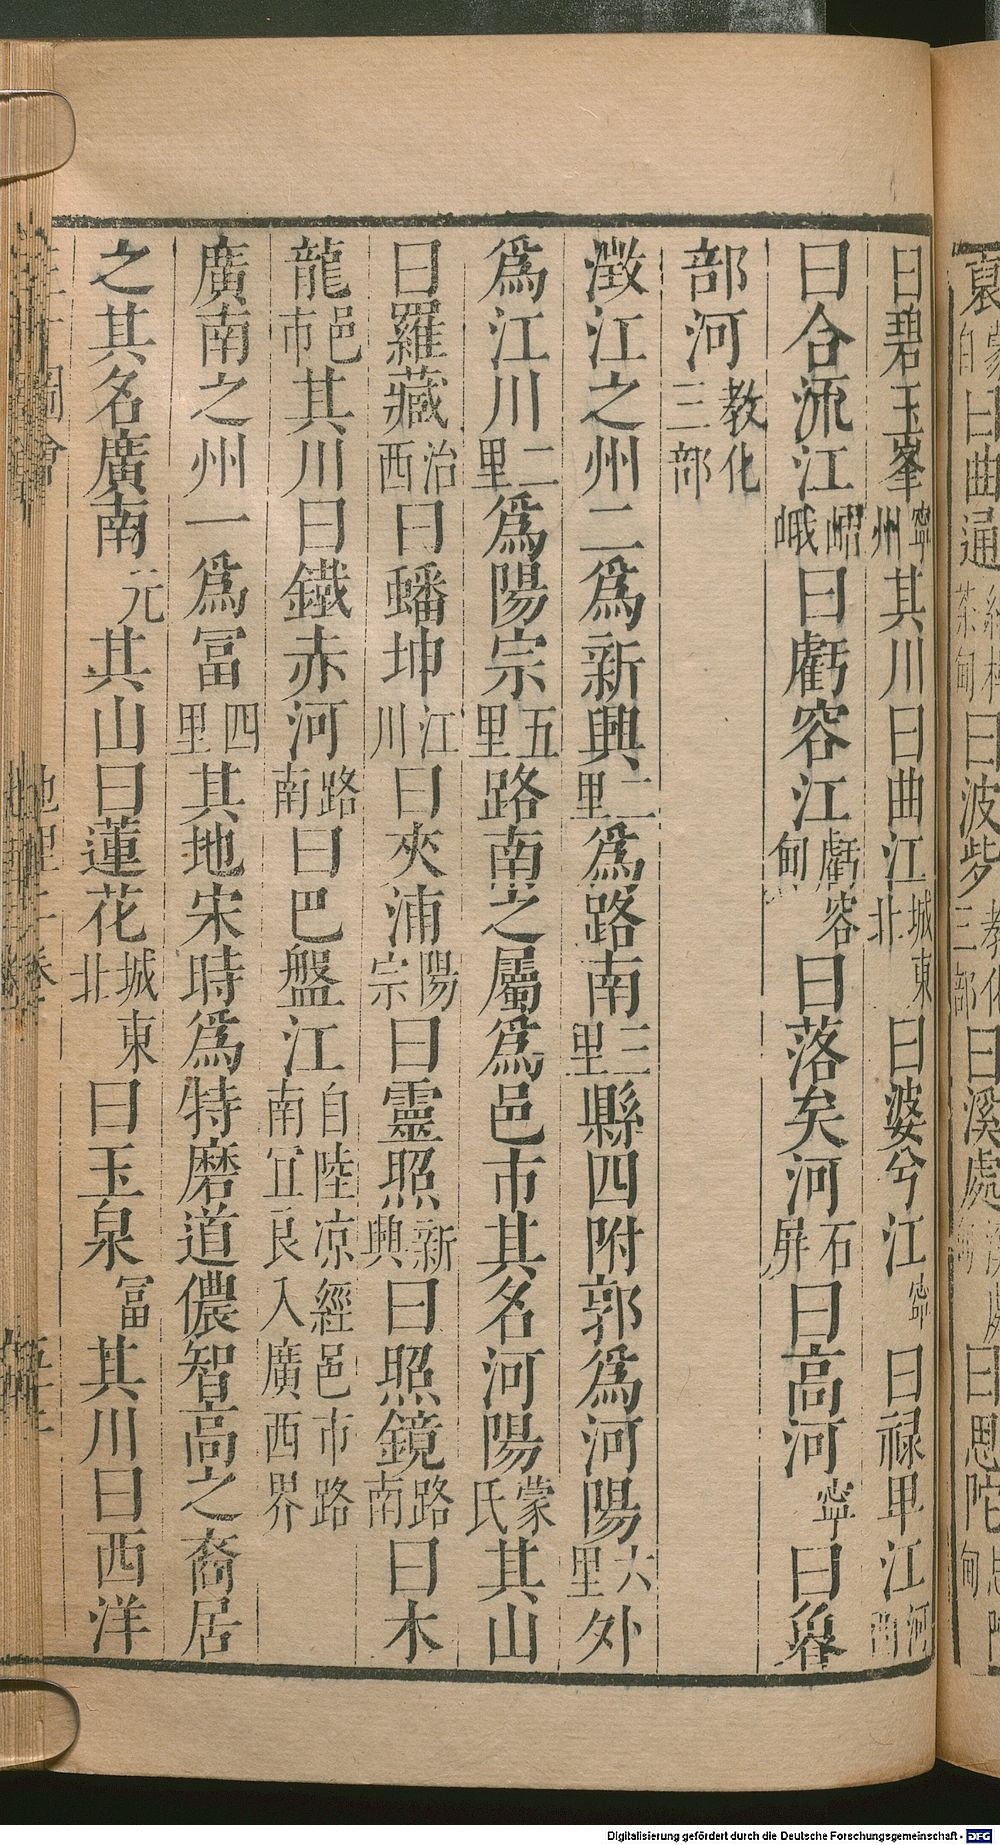 曰碧玉峯寧州其川曰曲江城東北曰婆兮江寧曰禄卑江河西
曰合流江嶍峨曰虧容江虧容甸曰落矣河石屏曰高河寧曰畨
部河教化三部
澂江之州二爲新興二里爲路南三里縣四附郭爲河陽六里外
爲江川二里爲陽宗五里路南之屬爲邑市其名河陽蒙氏其山
曰羅藏治西曰蟠坤江川曰夾浦陽宗曰靈照新興曰照鏡路南曰木
龍邑市其川曰鐵赤河路南曰巴盤江自陸凉經邑市路南冝良入廣西界
廣南之州一爲冨四里其地宋時爲特磨道儂智高之裔居
之其名廣南元其山曰蓮花城東北曰玉泉冨其川曰西洋
Digitalisierung gefördert durch die Deutsche Forschungsgemeinschaft - DFG